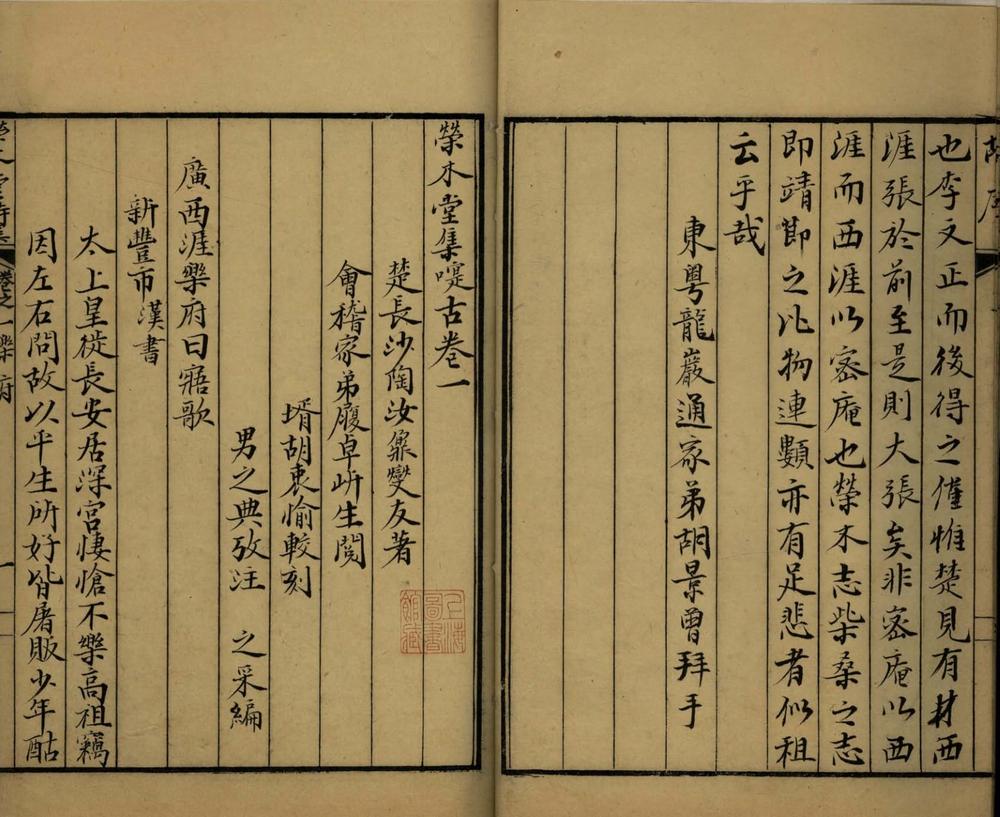 也李文正而後得之僅惟楚見有材西
涯張於前至是則大張矣非密庵以西
涯而西涯以密庵也榮木志柴桑之志
即靖節之比物連類亦有足悲者似祖
云乎哉
東粵龍巖通家弟胡景曾拜手
榮木堂集嚏古卷一
楚長沙陶汝鼐燮友著
會稽家弟履卓岍生閱
壻胡衷愉較刻
男之典攷注 之采編
廣西涯樂府曰寤歌
新豐市漢書
太上皇徙長安居深宮悽愴不樂高祖竊
因左右問故以平生所好皆屠販少年酤
卷之一樂府
上海圖書館藏